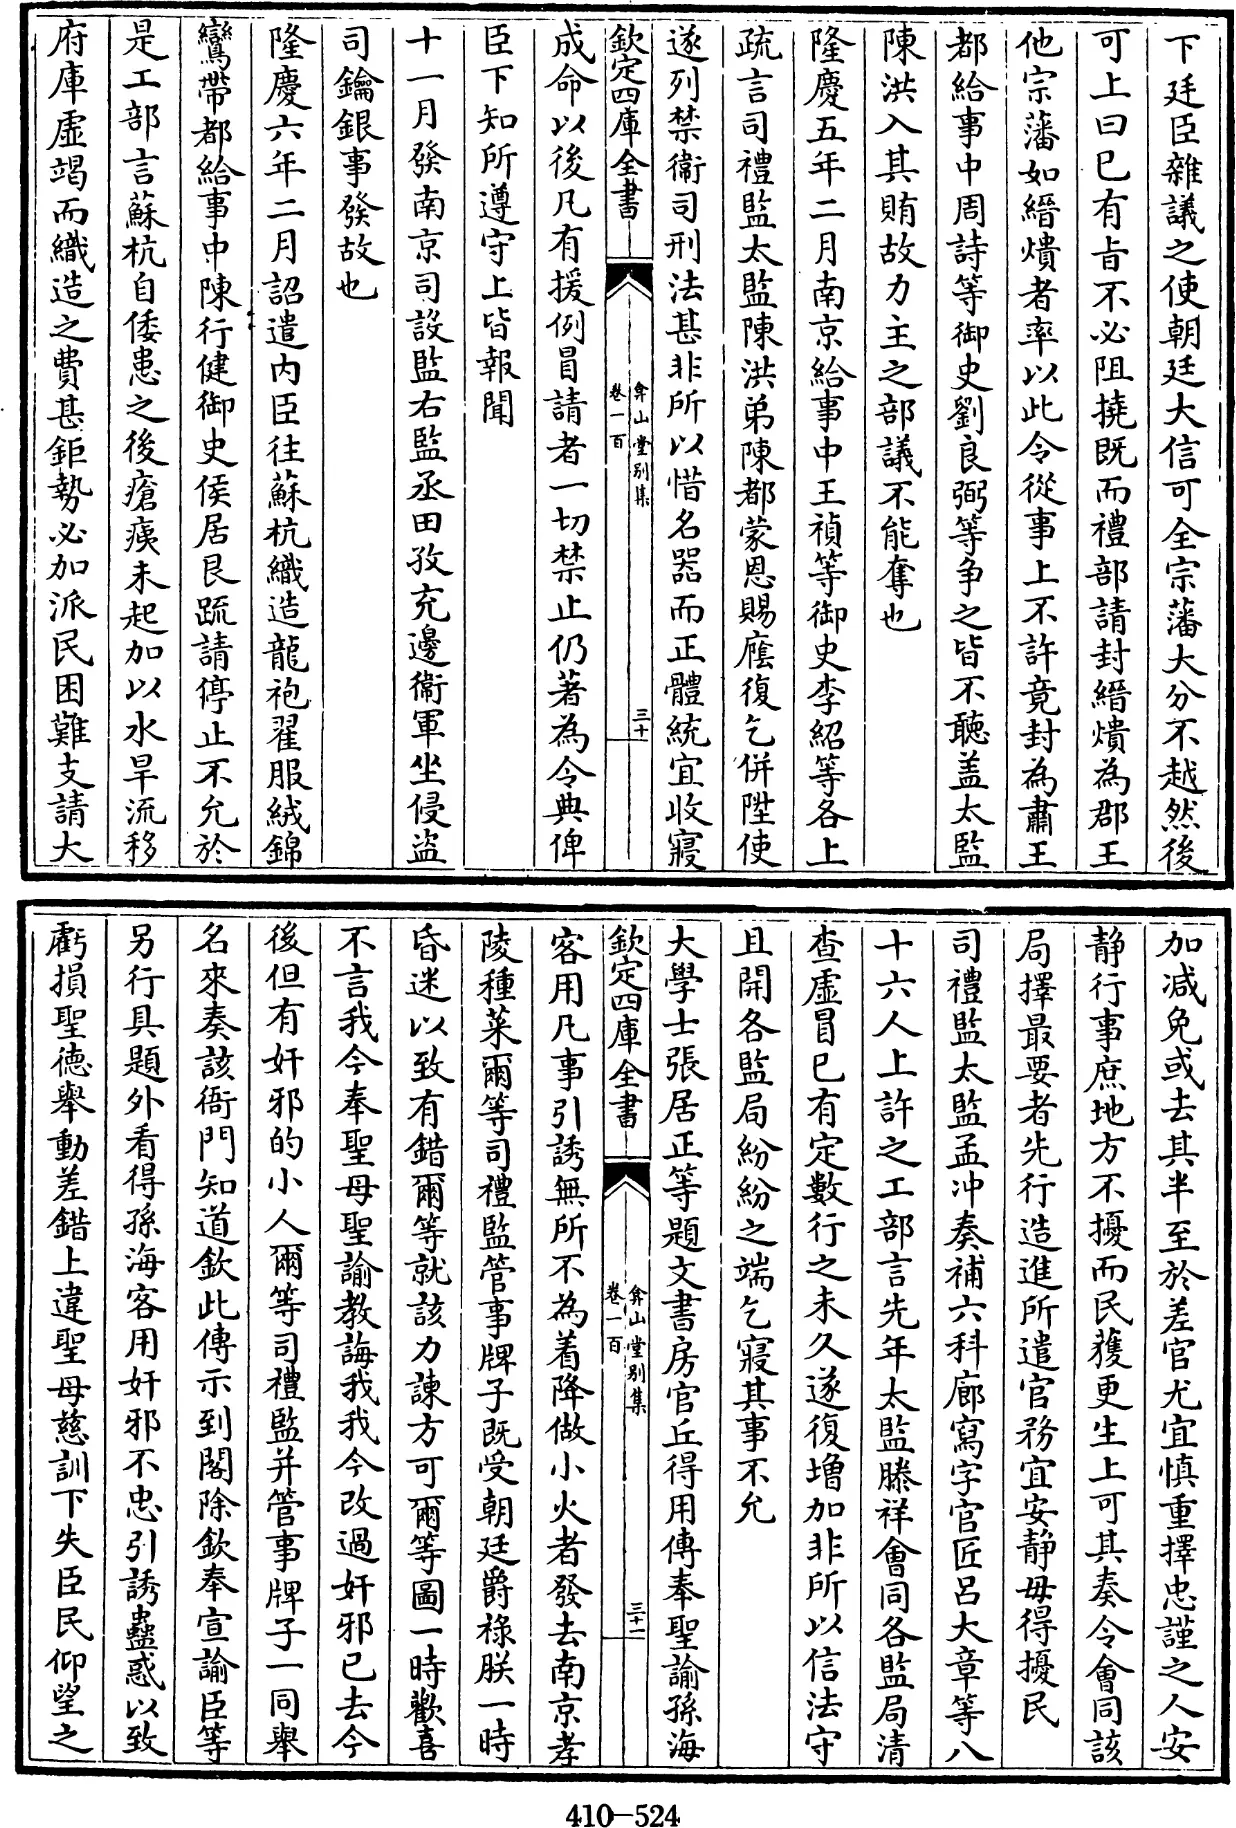 下廷臣雜議之使朝廷大信可全宗藩大分不越然後
可上曰已有旨不必阻撓既而禮部請封縉㷮為郡王
他宗藩如縉㷮者率以此令從事上不許竟封為肅王
都給事中周詩等御史劉良弼等争之皆不聽盖太監
陳洪入其賄故力主之部議不能奪也
隆慶五年二月南京給事中王禎等御史李紹等各上
疏言司禮監太監陳洪弟陳都蒙恩賜廕復乞併陞使
遂列禁衛司刑法甚非所以惜名器而正體統宜收寢
欽定四庫全書
弇山堂别集
卷一百
三十
成命以後凡有援例冒請者一切禁止仍著為令典俾
臣下知所遵守上皆報聞
十一月發南京司設監右監丞田孜充邊衛軍坐侵盜
司鑰銀事發故也
隆慶六年二月詔遣内臣往蘇杭織造龍袍翟服絨錦
鸞帶都給事中陳行健御史侯居艮疏請停止不允於
是工部言蘇杭自倭患之後瘡痍未起加以水旱流移
府庫虛竭而織造之費甚鉅勢必加派民困難支請大
加减免或去其半至於差官尤宜慎重擇忠謹之人安
静行事庶地方不擾而民獲更生上可其奏令會同該
局擇最要者先行造進所遣官務宜安静毋得擾民
司禮監太監孟冲奏補六科廊寫字官匠呂大章等八
十六人上許之工部言先年太監滕祥會同各監局清
查虛冒已有定數行之未久遂復增加非所以信法守
且開各監局紛紛之端乞寢其事不允
大學士張居正等題文書房官丘得用傳奉聖諭孫海
欽定四庫全書
弇山堂别集
卷一百
三十一
客用凡事引誘無所不為着降做小火者發去南京孝
陵種菜爾等司禮監管事牌子既受朝廷爵禄朕一時
昏迷以致有錯爾等就該力諫方可爾等圖一時歡喜
不言我今奉聖母聖諭教誨我我今改過奸邪已去今
後但有奸邪的小人爾等司禮監并管事牌子一同舉
名來奏該衙門知道欽此傳示到閣除欽奉宣諭臣等
另行具題外看得孫海客用奸邪不忠引誘蠱惑以致
虧損聖德舉動差錯上違聖母慈訓下失臣民仰望之
410—524